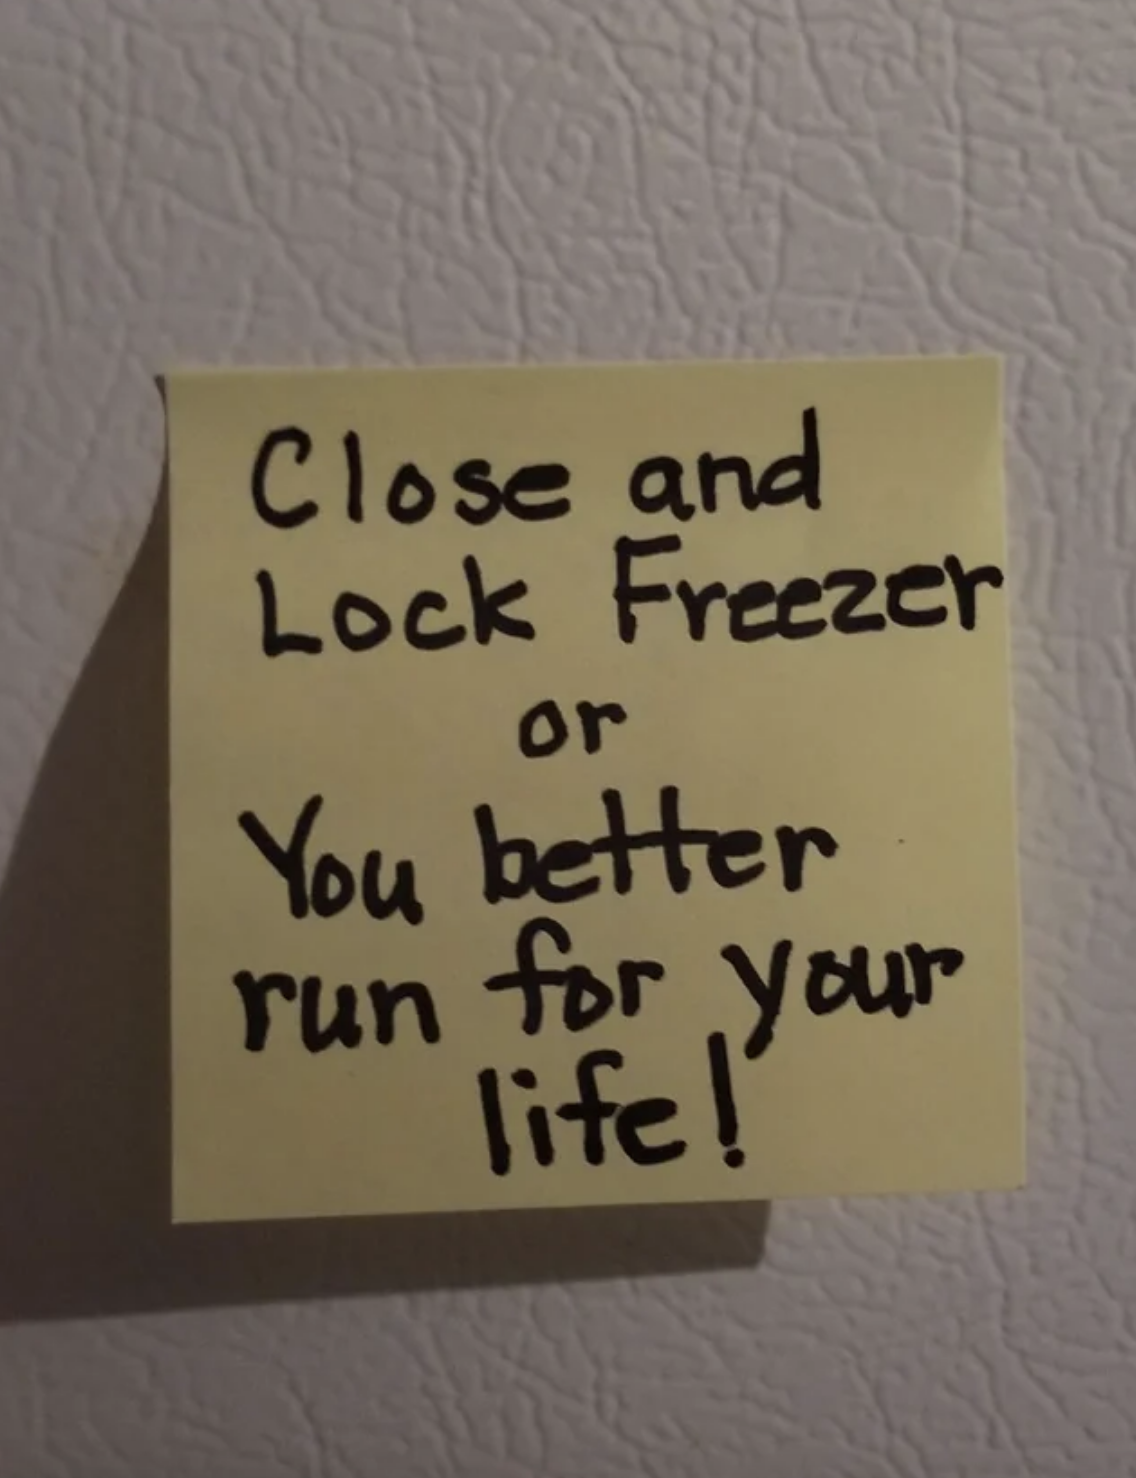 Close and
Lock Freezer
or
You better
run for your
life!